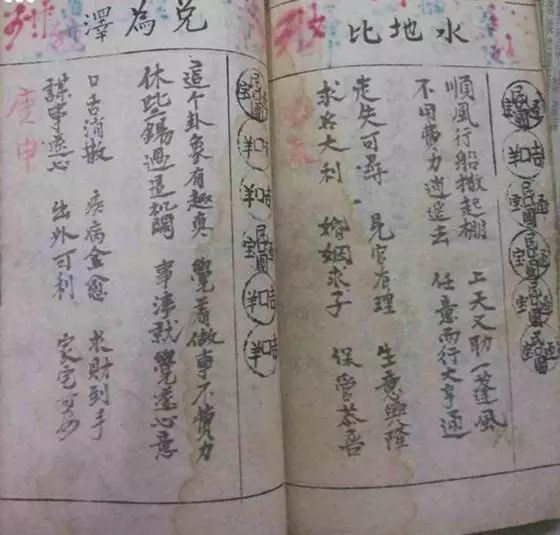 水地比
順風行船撒起棚 上天又助一蓬風
不用費力逍遙去 任意而行大亨通
走失可尋 見官有理 生意興隆
求名大利 婚姻求子 保管恭喜
兌為澤
這个卦象有趣真 覺着做事不費力
休些錯過這机関 事凖就覺遂心意
口舌消散 疾病全愈 求財到手
謀事遂心 出外可利 家宅可
庚申